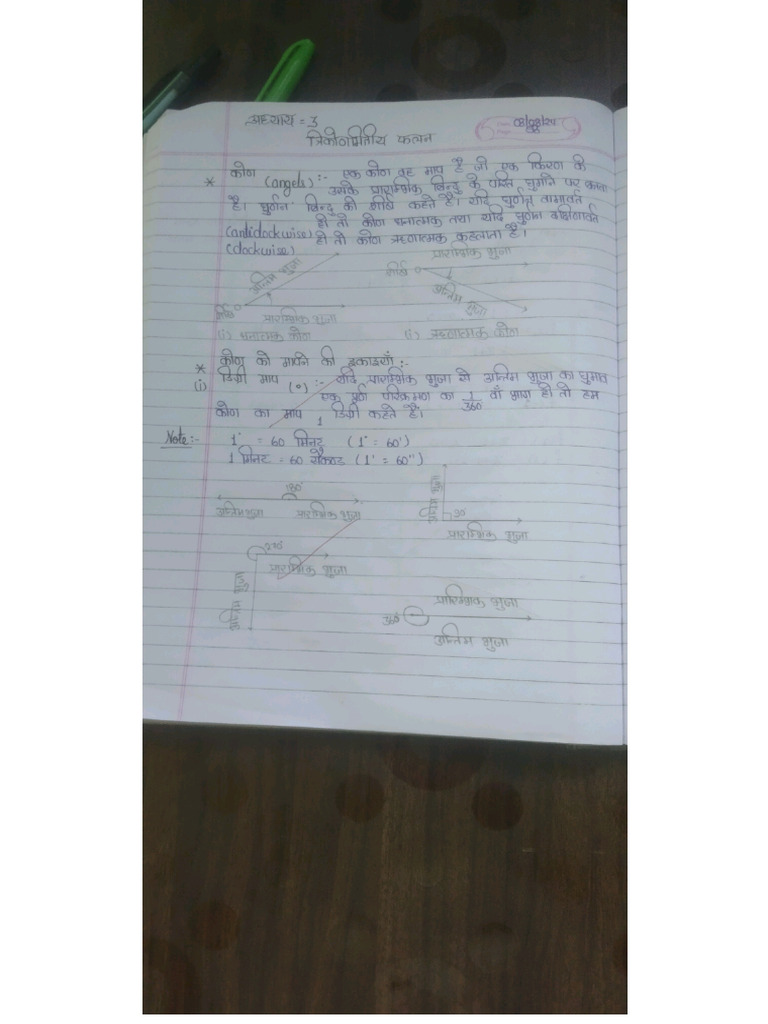 अध्याय = 3
08/08/24
त्रिकोणमितीय फलन
* कोण (angels) :- एक कोण वह माप है जो एक किरण के
उसके प्रारम्भिक बिन्दु के परित घुमाने पर बनता
है। घुर्णन बिन्दु को शीर्ष कहते है। यदि घुर्णन वामावर्त
(antidockwise) हो तो कोण धनात्मक तथा यदि घुर्णन दक्षिणावर्त
(dockwise) हो तो कोण ऋणात्मक कहलाता है।
अन्तिम भुजा
शीर्ष
प्रारम्भिक भुजा
(i) धनात्मक कोण
प्रारम्भिक भुजा
शीर्ष
अन्तिम भुजा
(i) ऋणात्मक कोण
* कोण को मापने की इकाइयाँ :-
(i) डिग्री माप (०) :- यदि प्रारम्भिक भुजा से अन्तिम भुजा का घुमाव
एक पूर्ण परिक्रमण का 1/360 वाँ भाग हो तो हम
कोण का माप 1 डिग्री कहते है।
Note :- 1° = 60 मिनट (1° = 60')
1 मिनट = 60 सैकण्ड (1' = 60")
180°
अन्तिम भुजा प्रारम्भिक भुजा
अन्तिम भुजा
90°
प्रारम्भिक भुजा
270°
प्रारम्भिक भुजा
अन्तिम भुजा
प्रारम्भिक भुजा
360°
अन्तिम भुजा